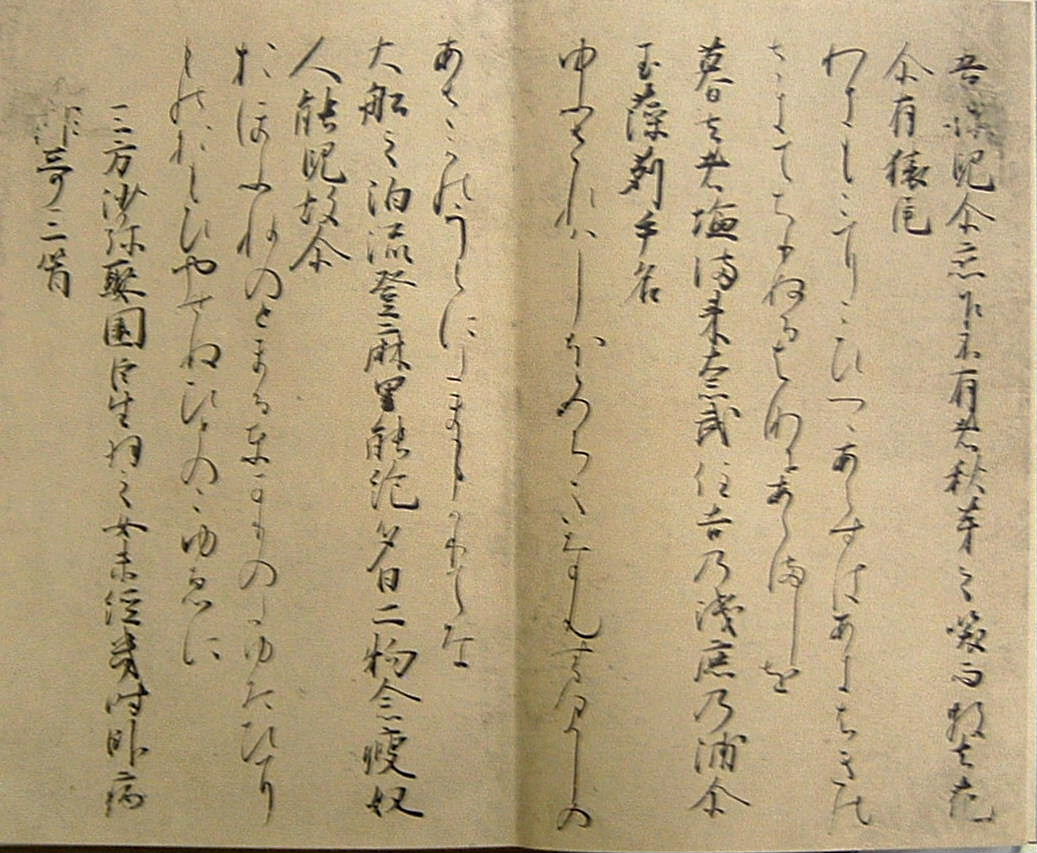 吾妹児尓恋乍不有者秋芽之咲而散去花
尓有猿尾
わきもこにこひつゝあらすはあきはきの
さきてちりぬるはなにあらましを
暮去者塩満来奈武住吉乃浅鹿乃浦尓
玉藻苅手名
ゆふされはしほみちきなむすみよしの
あさかのうらにたまもかりてな
大船之泊流登麻里能絶多日二物念痩奴
人能児故尓
おほふねのとまるとまりのたゆたひに
ものおもひやせぬひとのこゆゑに
三方沙弥娶園臣生羽之女未経幾時臥病
作哥三首